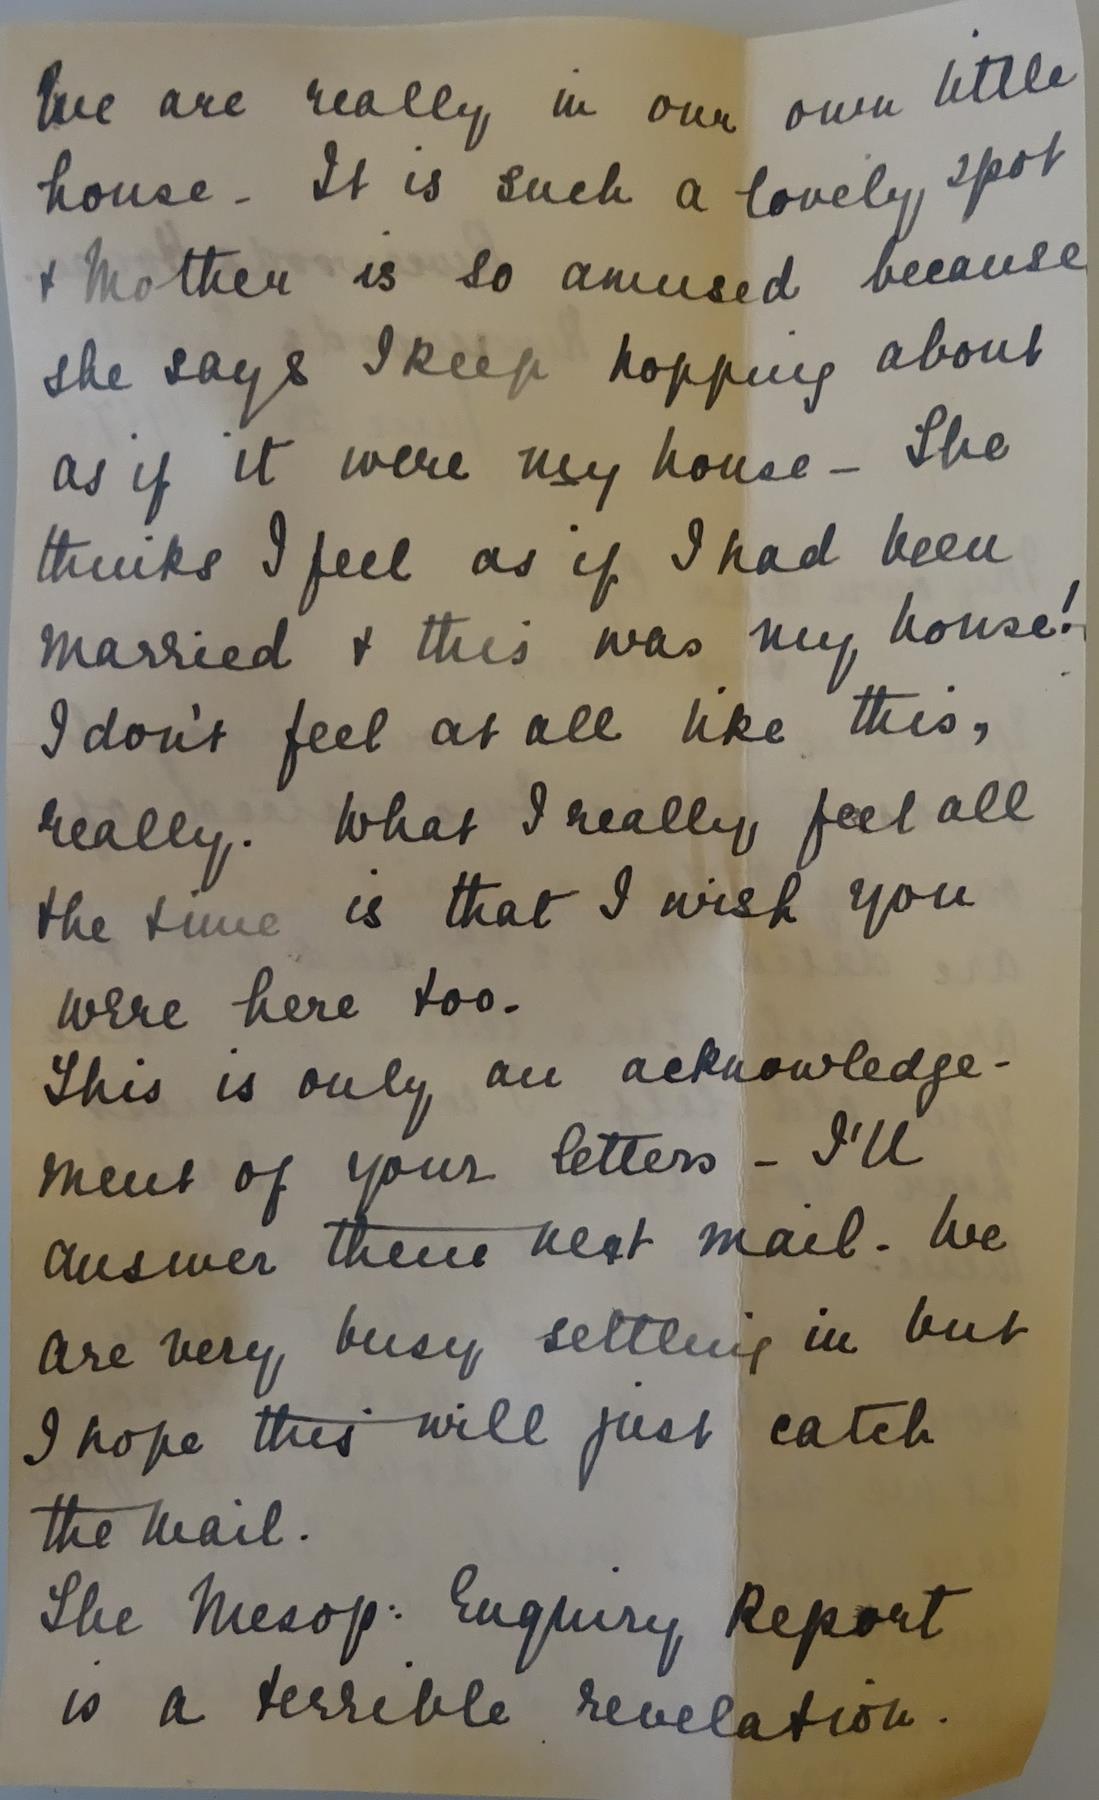 We are really in our own little
house - It is such a lovely spot
& Mother is so amused because
she says I keep hopping about
as if it were my house - She
thinks I feel as if I had been
married & this was my house!
I don't feel at all like this,
really. What I really feel all
the time is that I wish you
were here too.
This is only an acknowledge-
ment of your letters - I'll
answer them next mail. We
are very busy settling in but
I hope this will just catch
the mail.
The Mesop: Enquiry Report
is a terrible revelation.